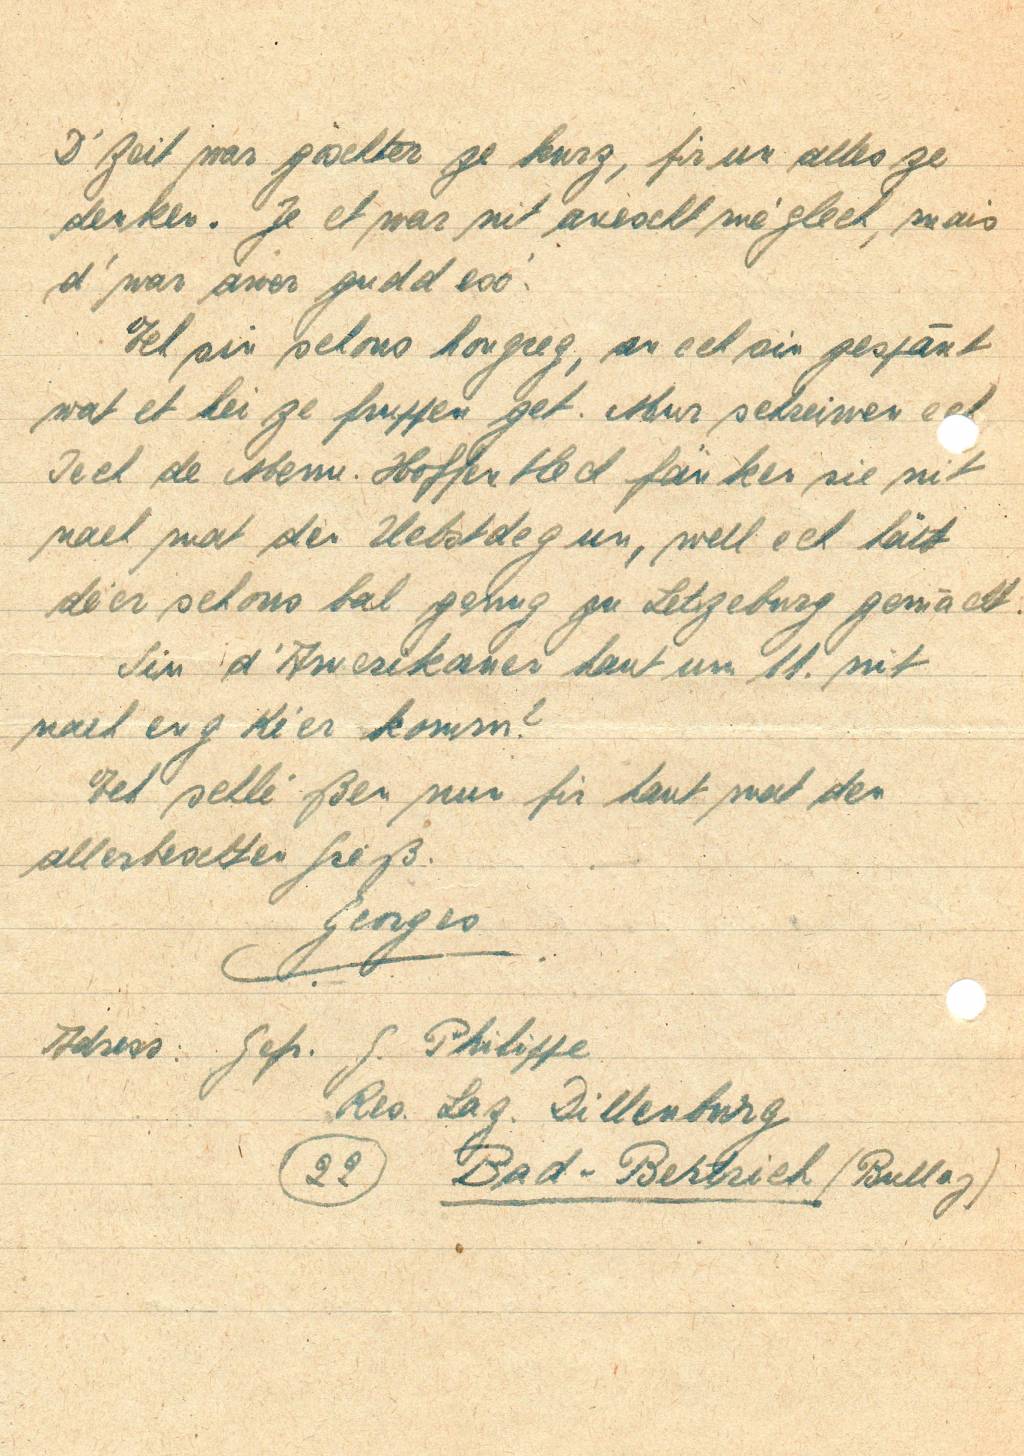 D' Zeit war gëschter ze kurz, fir un alles ze
denken. Je et war nit anescht méiglech, mais
d' war awer gudd esó.
Ech sin schons hongreg, an ech sin gespānt
wat et hei ze fruppen get. Mur schreiwen ech
Iech de Menu. Hoffentlech fänken sie nit
nach mat der Uebstdeg un, well ech hätt
déer schons bal genug zu Letzeburg gemācht.
Sin d'Amerikaner haut um 11. nit
nach eng Kéier komm?
Ech schlé ßen nun fir haut mat den
allerbeschten Gréß.
Georges
Adress: Gefr. G. Philippe
Res. Laz. Dillenburg
(22) Bad-Bertrich (Bullay)